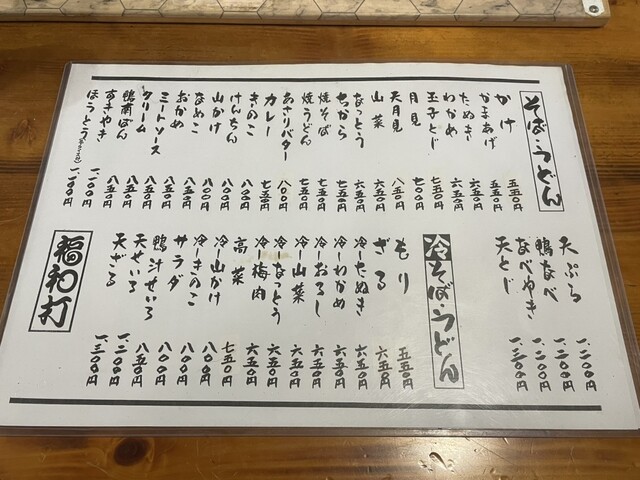 そば・うどん
かけ 五五〇円
かまあげ 五五〇円
たぬき 六五〇円
わかめ 六五〇円
玉子とじ 七五〇円
月見 七五〇円
天月見 八五〇円
山菜 六五〇円
なっとう 六五〇円
ちから 七五〇円
焼そば 七五〇円
焼うどん 七五〇円
あさりバター 八〇〇円
カレー 七五〇円
きのこ 八〇〇円
けんちん 八〇〇円
山かけ 八〇〇円
なめこ 八〇〇円
おかめ 八五〇円
ミートソース 八五〇円
クリーム 八五〇円
鴨南ばん 八五〇円
すきやき 一、〇〇〇円
ほうとう 一、一〇〇円
天ぷら 一、二〇〇円
鴨なべ 一、二〇〇円
なべやき 一、二〇〇円
天とじ 一、三〇〇円
冷そば・うどん
もり 五五〇円
ざる 六五〇円
冷ーたぬき 六五〇円
冷ーわかめ 六五〇円
冷ーおろし 六五〇円
冷ー山菜 六五〇円
冷ーなっとう 六五〇円
冷ー梅肉 六五〇円
高菜 七五〇円
冷ー山かけ 八〇〇円
冷ーきのこ 八〇〇円
サラダ 八〇〇円
鴨汁せいろ 八五〇円
天せいろ 一、二〇〇円
天ざる 一、三〇〇円
福和打